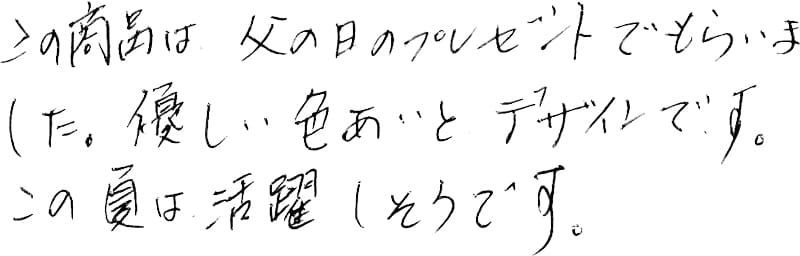 この商品は、父の日のプレゼントでもらいま
した。優しい色あいとデザインです。
この夏は活躍しそうです。